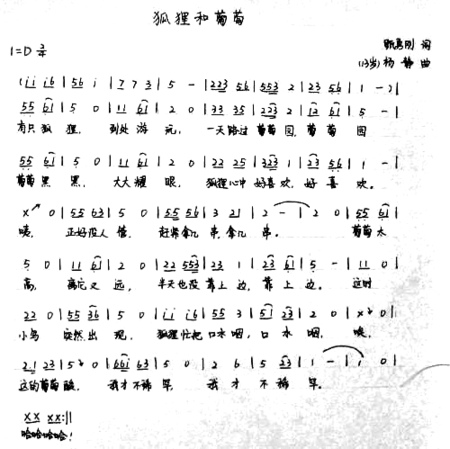 狐狸和葡萄
1=D 2/4
词
(13岁) 杨静 曲
(i i i 6 | 5 6 i | 7 7 3 | 5 - | 2 2 3 5 6 | 5 5 3 2 | 2 3 5 6 | 1 - )|
5 5 6 1 | 5 0 | 1 1 6 1 | 2 0 | 3 3 3 5 | 2 2 3 2 | 1 2 6 1 | 5 - |
有只狐狸, 到处游玩, 一天路过葡萄园, 葡萄园
5 5 6 1 | 5 0 | 1 1 6 1 | 2 0 | 2 2 2 5 | 3 2 3 1 | 2 3 5 6 | 1 - |
葡萄黑黑, 大大耀眼, 狐狸心中好喜欢, 好喜欢。
x 0 | 5 5 6 3 | 5 0 | 5 5 5 6 | 3 2 1 | 2 - | 2 0 | 5 5 6 1 |
咦, 正好没人管, 赶紧拿几串, 拿几串。 葡萄太
5 0 | 1 1 6 1 | 2 0 | 2 2 5 5 3 | 2 3 1 | 2 3 6 1 | 5 - | 1 1 0 |
高, 离它又远, 半天也没靠上边, 靠上边。 这时
2 2 0 | 5 5 3 6 | 5 0 | i i i 6 | 5 5 3 | 5 1 2 3 | 2 0 | x 0 |
小鸟 突然出现, 狐狸忙把口水咽, 口水咽, 唉,
2 1 2 3 | 5 0 | 6 6 i 6 3 | 5 0 | 2 6 | 5 5 3 | 1 - | 1 0 |
这的葡萄酸, 我才不稀罕, 我才不稀罕。
x x x x :||
哈哈哈哈!